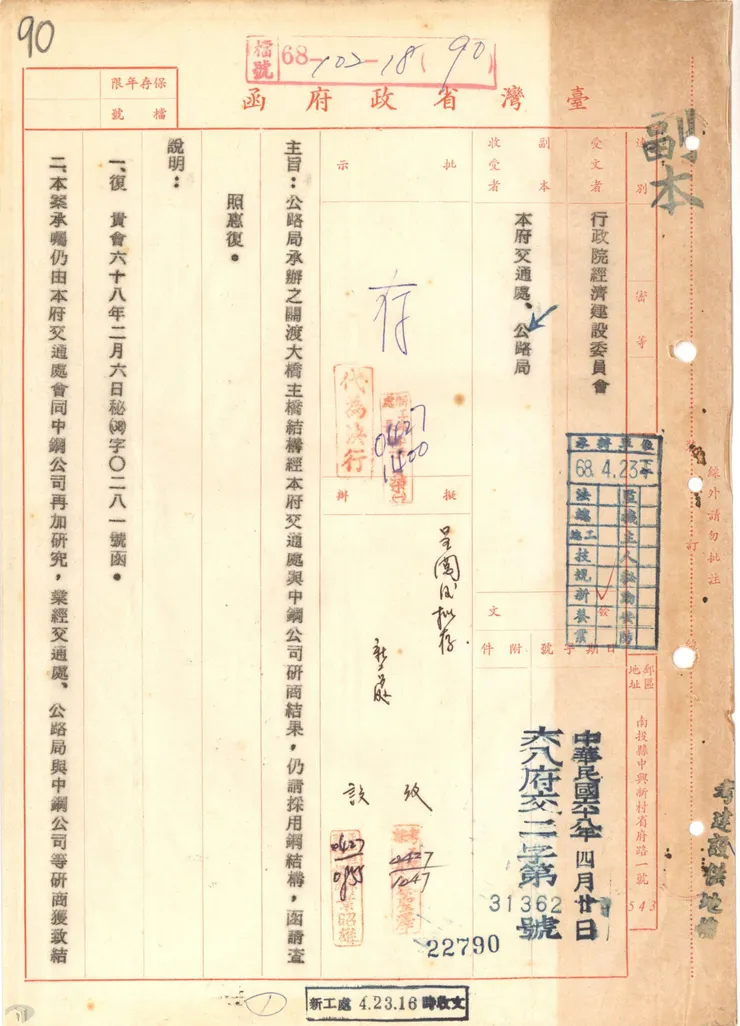 90
檔號
68-102-18(90)
臺灣省政府函
保存年限
檔號
副本
速別
密等
受文者
行政院經濟建設委員會
副本
收受者
本府交通處、公路局
批示
存
代為決行
0427
1400
擬辦
呈閱後擬存
0427
1047
0427
0855
主旨：公路局承辦之關渡大橋主橋結構經本府交通處與中鋼公司研商結果，仍請採用鋼結構，函請查
照惠復。
說明：
一、復　貴會六十八年二月六日秘㈱字〇二八一號函。
二、本案承囑仍由本府交通處會同中鋼公司再加研究，業經交通處、公路局與中鋼公司等研商獲致結
發文
日期
字號
附件
中華民國六十八年四月廿日
六八府交二字第31362號
22790
郵區
地址
南投縣中興新村省府路一號
543
68.4.23
裝訂線
線外請勿批註
新工處 4.23.16 時收文